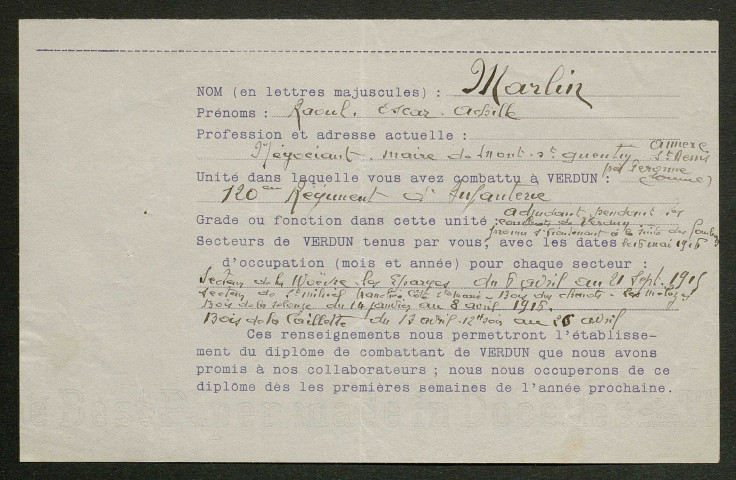 NOM (en lettres majuscules) : Marlin
Prénoms : Raoul. Escar. Achille
Profession et adresse actuelle :
Négociant. maire de Mont-St-Quentin annexe St Denis
par Peronne (Somme)
Unité dans laquelle vous avez combattu à VERDUN :
120ème Régiment d'Infanterie
Grade ou fonction dans cette unité : adjudant pendant les
combats de Verdun
promu s/lieutenant à la suite des combats
Secteurs de VERDUN tenus par vous, avec les dates le 16 mai 1916
d'occupation (mois et année) pour chaque secteur :
Secteur de la Woëvre. les Eparges du 6 avril au 21 Sept. 1915
Secteur de St Mihiel Bois des
Bois de la Selouse du 14 janvier au 8 avril 1916.
Bois de la Caillette du 13 avril au 26 avril
Ces renseignements nous permettront l'établisse-
ment du diplôme de combattant de VERDUN que nous avons
promis à nos collaborateurs ; nous nous occuperons de ce
diplôme dès les premières semaines de l'année prochaine.